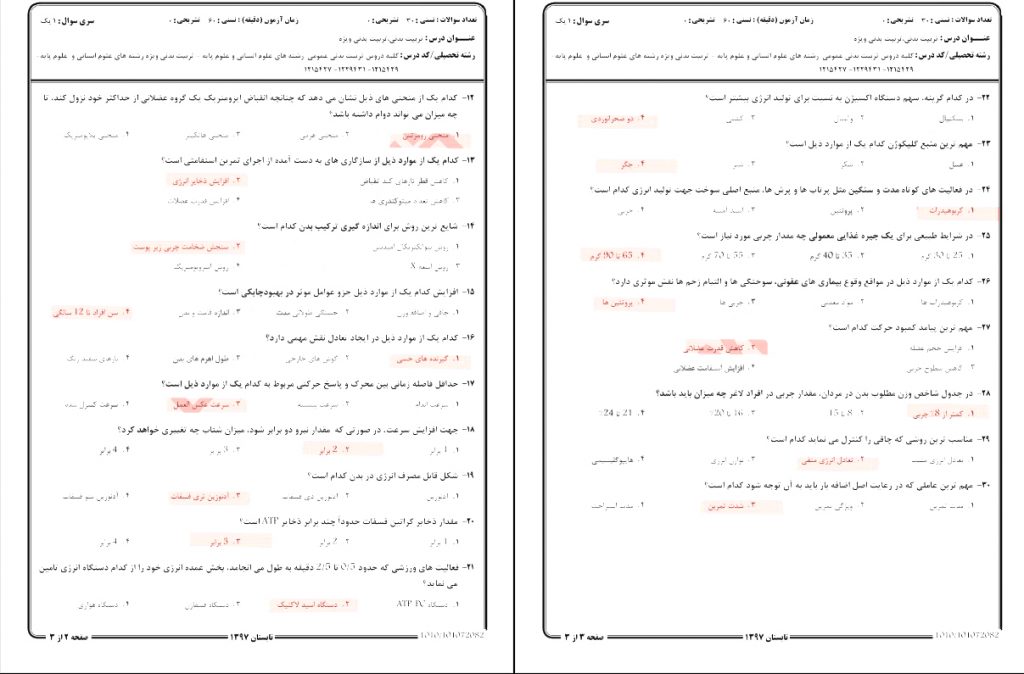 تعداد سوالات : تستی : ۳۰ تشریحی : ۰
زمان آزمون (دقیقه) : تستی : ۶۰ تشریحی : ۰
سری سوال : ۱ یک
عنـــوان درس : تربیت بدنی، تربیت بدنی ویژه
رشته تحصیلی/کد درس : کلیه دروس تربیت بدنی عمومی رشته های علوم انسانی و علوم پایه - تربیت بدنی ویژه رشته های علوم انسانی و علوم پایه
۱۲۱۵۴۲۷ - ۱۲۲۹۴۳۱ - ۱۲۱۵۴۲۹
۱۲- کدام یک از منحنی های ذیل نشان می دهد که چنانچه انقباض ایزومتریک یک گروه عضلانی از حداکثر خود نزول کند، تا
چه میزان می تواند دوام داشته باشد؟
۱. منحنی رومرتس ۲. منحنی هرمی ۳. منحنی هاتگیتر ۴. منحنی پلایومتریک
۱۳- کدام یک از موارد ذیل از سازگاری های به دست آمده از اجرای تمرین استقامتی است؟
۱. کاهش قطر تارهای کند انقباض ۲. افزایش ذخایر انرژی
۳. کاهش تعداد میتوکندری ها ۴. افزایش قدرت عضلات
۱۴- شایع ترین روش برای اندازه گیری ترکیب بدن کدام است؟
۱. روش بیوالکتریکال امپدنس ۲. سنجش ضخامت چربی زیر پوست
۳. روش اشعه X ۴. روش آنتروپومتریک
۱۵- افزایش کدام یک از موارد ذیل جزو عوامل موثر در بهبودچابکی است؟
۱. چاقی و اضافه وزن ۲. خستگی طولانی مدت ۳. اندازه قامت و بدن ۴. سن افراد تا 12 سالگی
۱۶- کدام یک از موارد ذیل در ایجاد تعادل نقش مهمی دارد؟
۱. گیرنده های حسی ۲. گوش های خارجی ۳. طول اهرم های بدن ۴. تارهای سفید رنگ
۱۷- حداقل فاصله زمانی بین محرک و پاسخ حرکتی مربوط به کدام یک از موارد ذیل است؟
۱. سرعت اندام ۲. سرعت بیشینه ۳. سرعت عکس العمل ۴. سرعت کنترل شده
۱۸- جهت افزایش سرعت، در صورتی که مقدار نیرو دو برابر شود، میزان شتاب چه تغییری خواهد کرد؟
۱. 1 برابر ۲. 2 برابر ۳. 3 برابر ۴. 4 برابر
۱۹- شکل قابل مصرف انرژی در بدن کدام است؟
۱. آدنوزین ۲. آدنوزین دی فسفات ۳. آدنوزین تری فسفات ۴. آدنوزین منو فسفات
۲۰- مقدار ذخایر کراتین فسفات حدوداً چند برابر ذخایر ATP است؟
۱. 1 برابر ۲. 2 برابر ۳. 3 برابر ۴. 4 برابر
۲۱- فعالیت های ورزشی که حدود 0/5 تا 2/5 دقیقه به طول می انجامد، بخش عمده انرژی خود را از کدام دستگاه انرژی تامین
می نماید؟
۱. دستگاه ATP-PC ۲. دستگاه اسید لاکتیک ۳. دستگاه فسفاژن ۴. دستگاه هوازی
1010/101072082
تابستان ۱۳۹۷
صفحه ۲ از ۳
تعداد سوالات : تستی : ۳۰ تشریحی : ۰
زمان آزمون (دقیقه) : تستی : ۶۰ تشریحی : ۰
سری سوال : ۱ یک
عنـــوان درس : تربیت بدنی، تربیت بدنی ویژه
رشته تحصیلی/کد درس : کلیه دروس تربیت بدنی عمومی رشته های علوم انسانی و علوم پایه - تربیت بدنی ویژه رشته های علوم انسانی و علوم پایه
۱۲۱۵۴۲۷ - ۱۲۲۹۴۳۱ - ۱۲۱۵۴۲۹
۲۲- در کدام گزینه، سهم دستگاه اکسیژن به نسبت برای تولید انرژی بیشتر است؟
۱. بسکتبال ۲. والیبال ۳. کشتی ۴. دو صحرانوردی
۲۳- مهم ترین منبع گلیکوژن کدام یک از موارد ذیل است؟
۱. عسل ۲. شکر ۳. شیر ۴. جگر
۲۴- در فعالیت های کوتاه مدت و سنگین مثل پرتاب ها و پرش ها، منبع اصلی سوخت جهت تولید انرژی کدام است؟
۱. کربوهیدرات ۲. پروتئین ۳. اسید آمینه ۴. چربی
۲۵- در شرایط طبیعی برای یک جیره غذایی معمولی چه مقدار چربی مورد نیاز است؟
۱. 25 تا 30 گرم ۲. 35 تا 40 گرم ۳. 55 تا 70 گرم ۴. 65 تا 90 گرم
۲۶- کدام یک از موارد ذیل در مواقع وقوع بیماری های عفونی، سوختگی ها و التیام زخم ها نقش موثری دارد؟
۱. کربوهیدرات ها ۲. مواد معدنی ۳. چربی ها ۴. پروتئین ها
۲۷- مهم ترین پیامد کمبود حرکت کدام است؟
۱. افزایش حجم عضله ۲. کاهش قدرت عضلانی
۳. کاهش سطوح چربی ۴. افزایش استقامت عضلانی
۲۸- در جدول شاخص وزن مطلوب بدن در مردان، مقدار چربی در افراد لاغر چه میزان باید باشد؟
۱. کمتر از 8٪ چربی ۲. 8 تا 15 ۳. 16 تا 20٪ ۴. 21 تا 24٪
۲۹- مناسب ترین روشی که چاقی را کنترل می نماید کدام است؟
۱. تعادل انرژی مثبت ۲. تعادل انرژی منفی ۳. توازن انرژی ۴. هایپوگلیسمی
۳۰- مهم ترین عاملی که در رعایت اصل اضافه بار باید به آن توجه شود کدام است؟
۱. مدت تمرین ۲. ویژگی تمرین ۳. شدت تمرین ۴. مدت استراحت
1010/101072082
تابستان ۱۳۹۷
صفحه ۳ از ۳